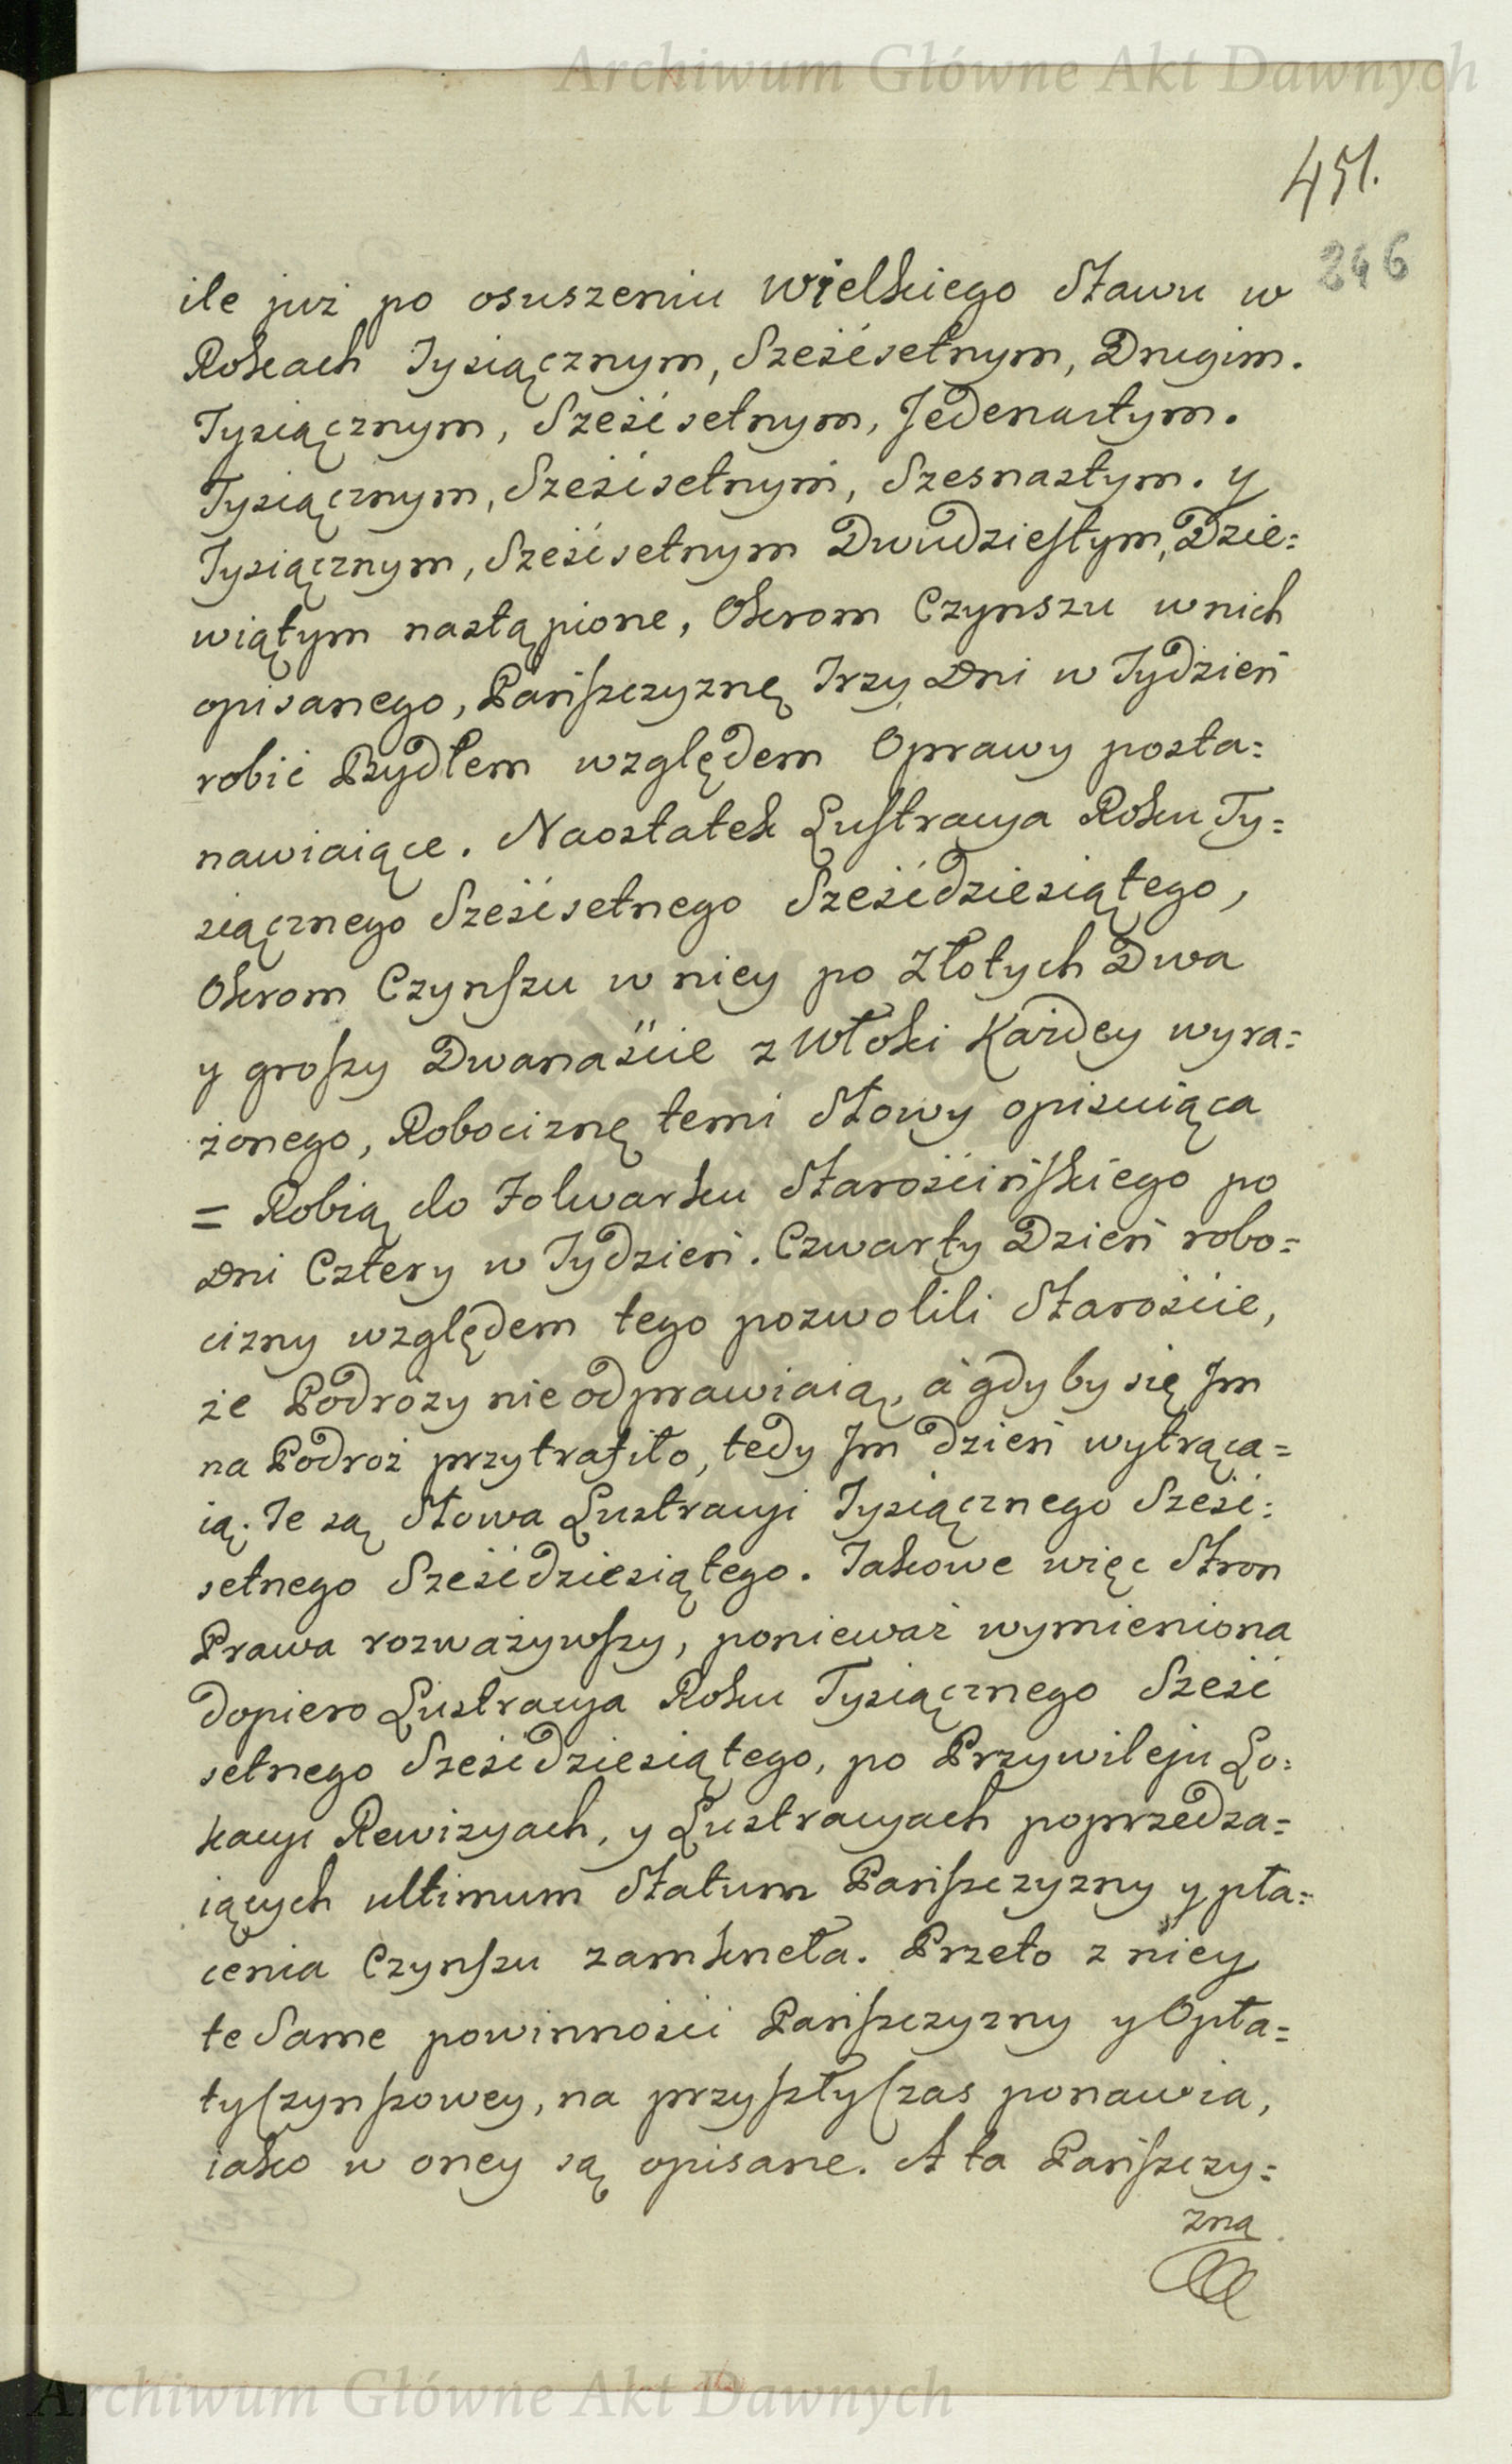 Archiwum Główne Akt Dawnych
451.
246
ile już po osuszeniu Wielkiego Stawu w
Rokach Tysiącznym, Sześćsetnym, Drugim.
Tysiącznym, Sześćsetnym, Jedenastym.
Tysiącznym, Sześćsetnym, Szesnastym. y
Tysiącznym, Sześćsetnym Dwudziestym, Dzie=
wiątym nastąpione, Okrom Czynszu w nich
opisanego, Pańszczyznę Trzy Dni w Tydzień
robić Bydłem względem Oprawy posta=
nawiaiące. Naostatek Lustracya Roku Ty=
siącznego Sześćsetnego Sześćdziesiątego,
Okrom Czynszu w niey po Złotych Dwa
y groszy Dwanaście z Włoki Każdey wyra=
żonego, Robociznę temi Słowy opisuiąca
= Robią do Folwarku Starościńskiego po
Dni Cztery w Tydzień. Czwarty Dzień robo=
cizny względem tego pozwolili Staroście,
że Podroży nie odprawiaią, à gdyby się Jm
na Podroż przytrafiło, tedy Jm dzień wytrąca=
ią. Te są Słowa Lustracyi Tysiącznego Sześć=
setnego Sześćdziesiątego. Takowe więc Stron
Prawa rozważywszy, ponieważ wymieniona
dopiero Lustracya Roku Tysiącznego Sześć
setnego Sześćdziesiątego, po Przywileju Lo=
kacyi Rewizyach, y Lustracyach poprzedza=
iących ultimum Statum Pańszczyzny y pła=
cenia Czynszu zamkneła. Przeto z niey
te Same powinności Pańszczyzny y Opła=
ty Czynszowey, na przyszły Czas ponawia,
iako w oney są opisane. A ta Pańszczy=
zna
Archiwum Główne Akt Dawnych